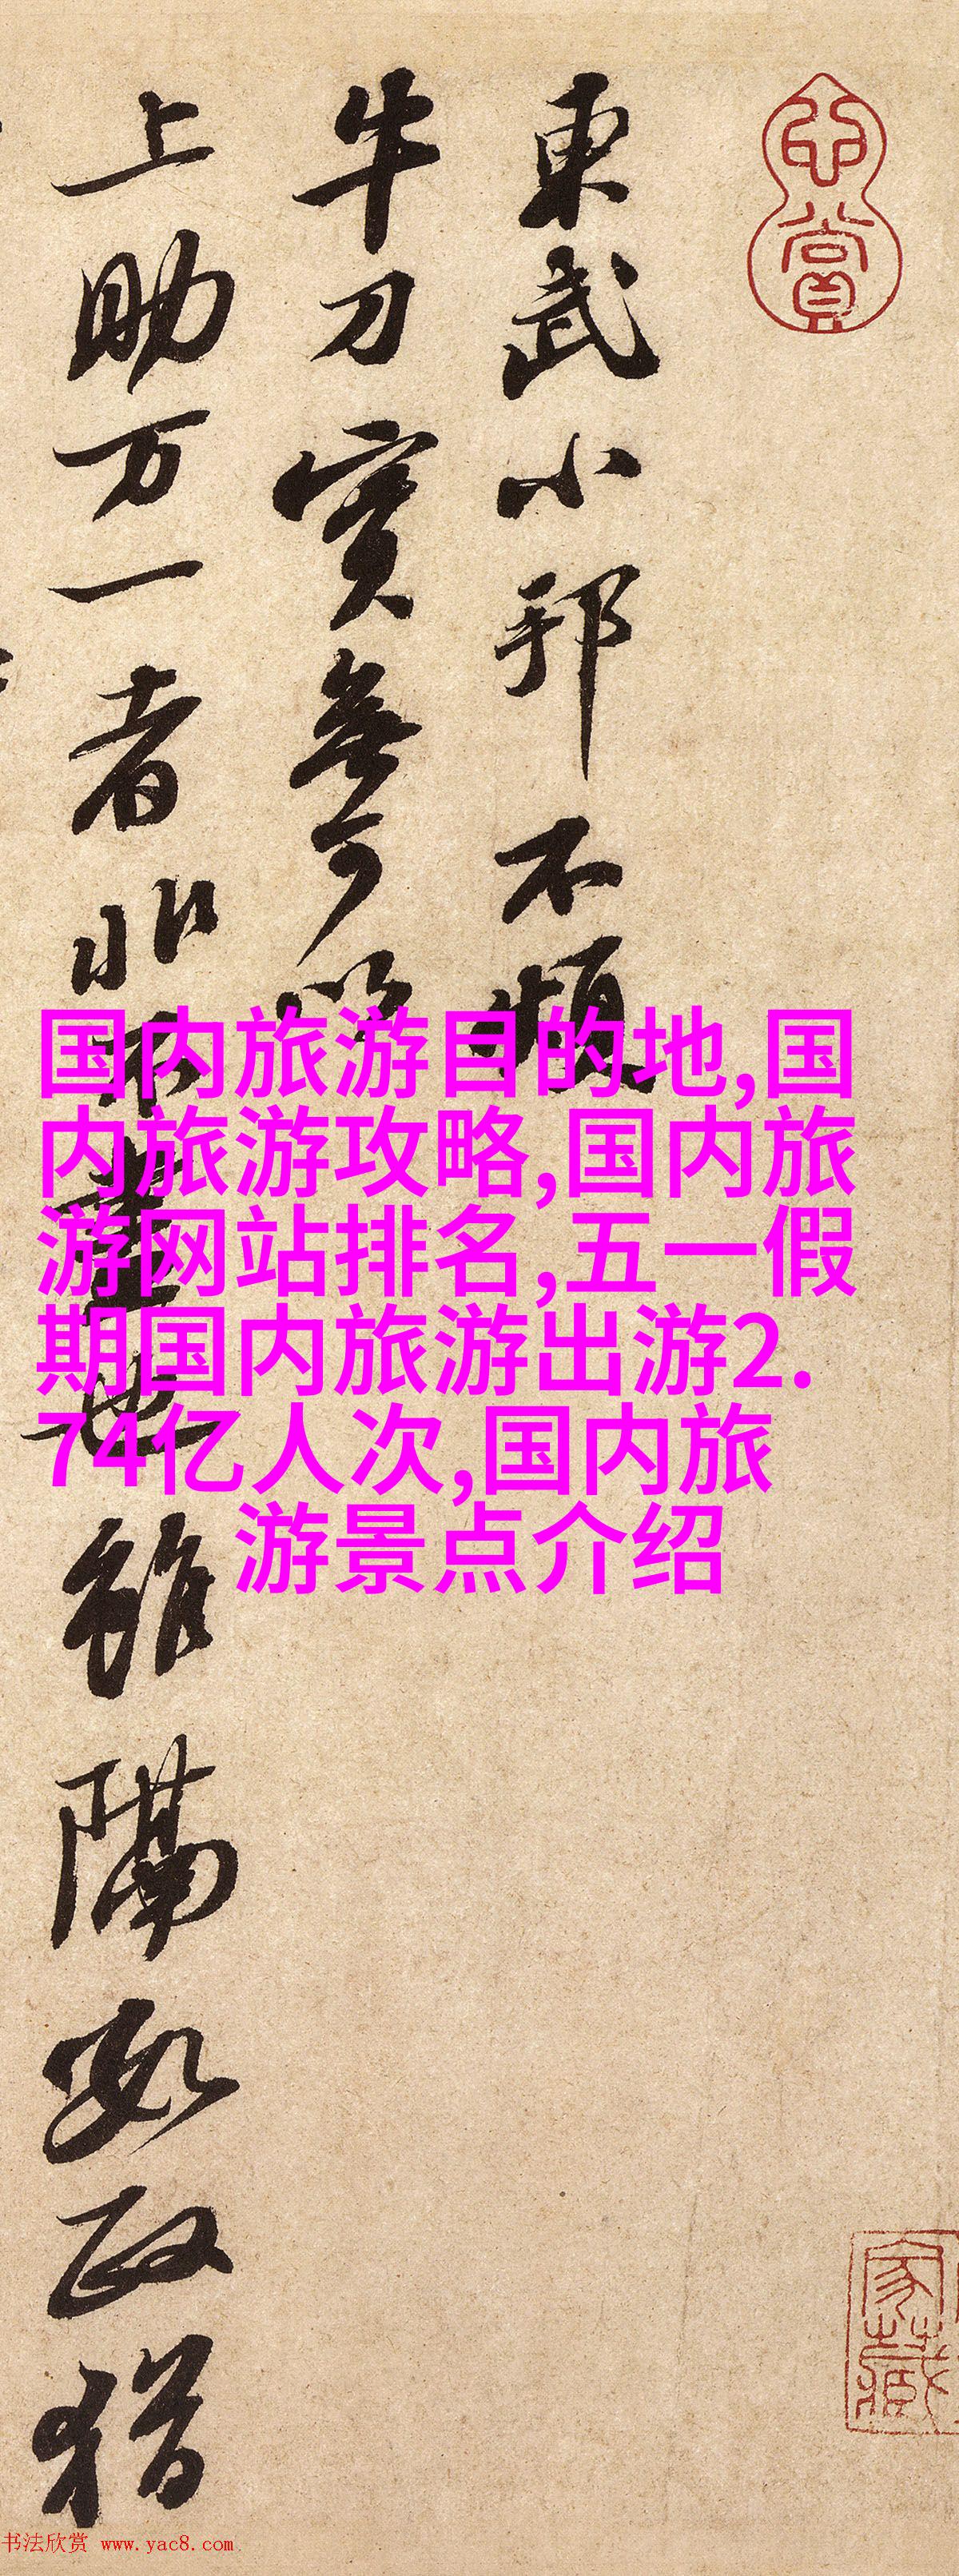 東武小邦不煩
牛刀實無可以
上助万一者非不盡也雖隔數政猶
心賞
家藏
国内旅游目的地,国
内旅游攻略,国内旅
游网站排名,五一假
期国内旅游出游2.
74亿人次,国内旅
游景点介绍
书法欣赏 www.yac8.com